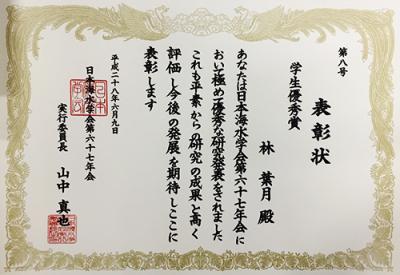 第八号
表彰状
学生優秀賞
林 葉月 殿
あなたは日本海水学会第六十七年会に
おいて極めて優秀な研究発表をされました
これも平素からの研究の成果と高く
評価し今後の発展を期待しここに
表彰します
平成二十八年六月九日
日本海水学会第六十七年会
実行委員長 山中 真也